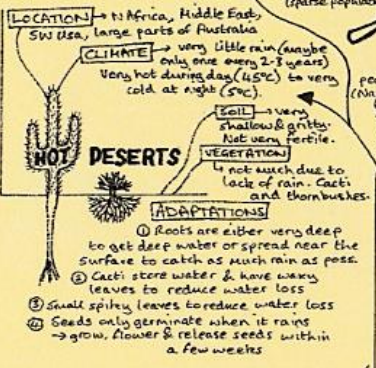 (sparse popula
LOCATION → N Africa, Middle East,
SW Usa, large parts of Australia
CLIMATE → very little rain (maybe
only once every 2-3 years)
Very hot during day (45°C) to very
cold at night (5°C).
SOIL → very
shallow & gritty.
Not very fertile.
VEGETATION
↳ not much due to
lack of rain. Cacti
and thornbushes.
HOT DESERTS
ADAPTATIONS
① Roots are either very deep
to get deep water or spread near the
surface to catch as much rain as poss.
② Cacti store water & have waxy
leaves to reduce water loss
③ Small spikey leaves to reduce water loss
④ Seeds only germinate when it rains
→ grow, flower & release seeds within
a few weeks
pe
(Na